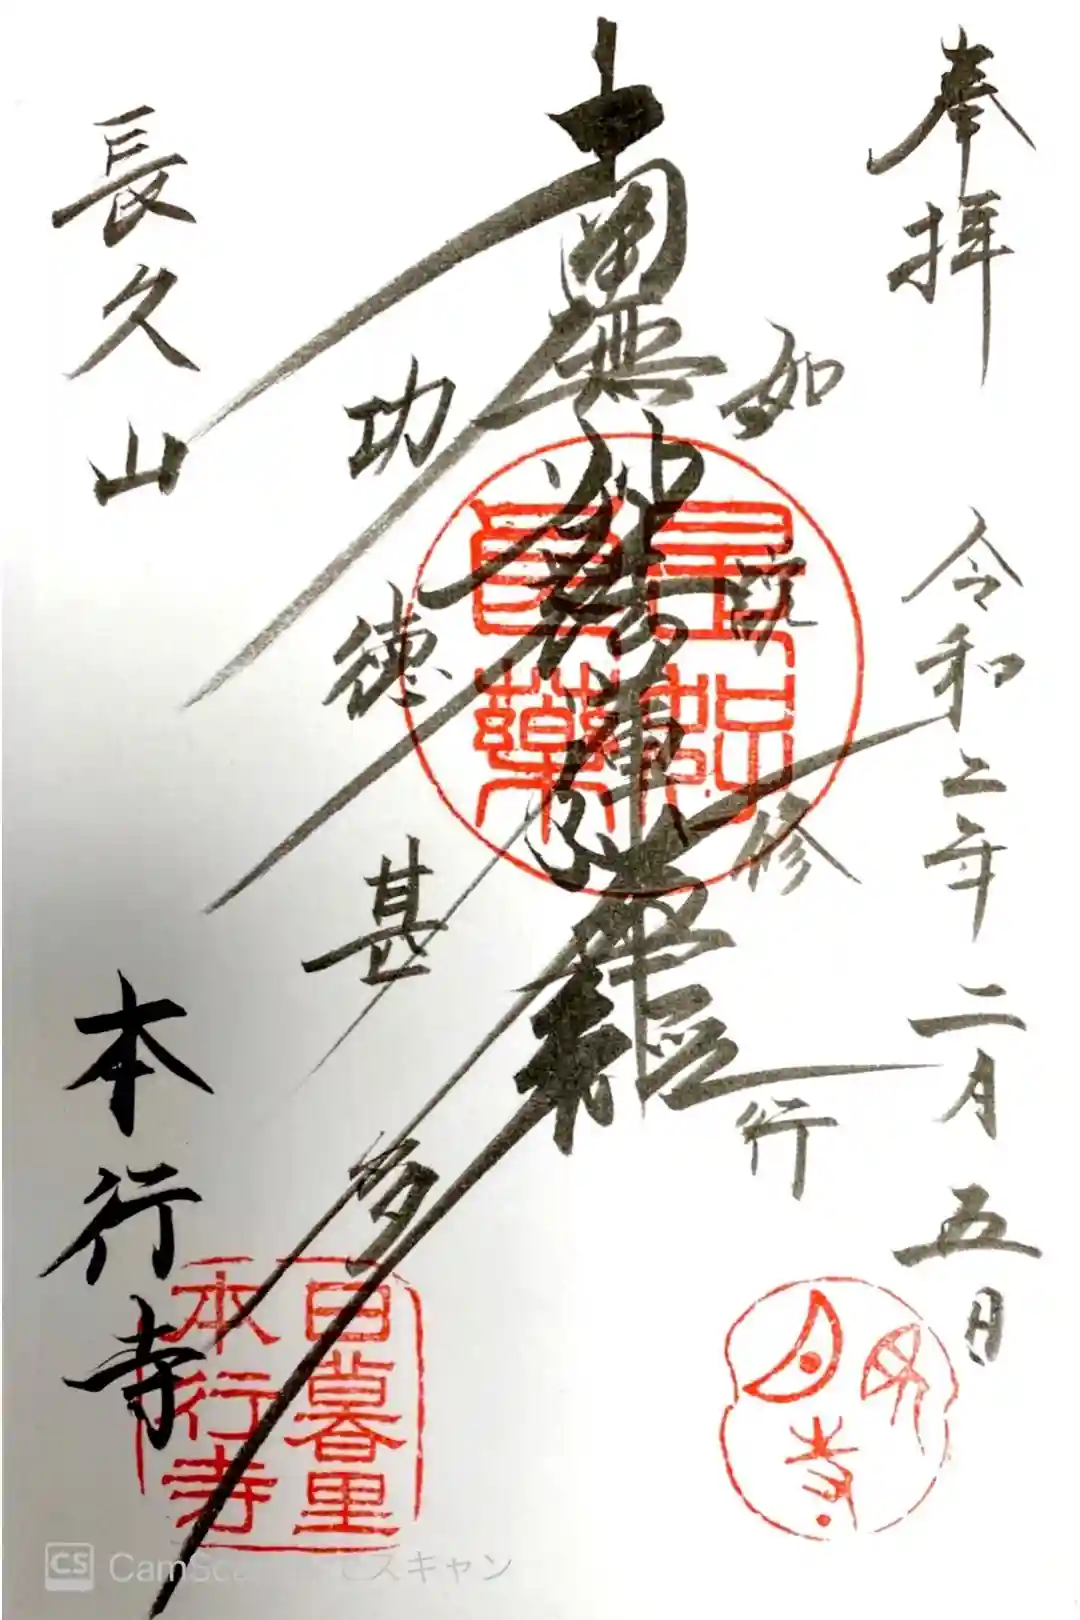 奉拝
令和二年二月五日
如説修行
南無妙法蓮華経
功徳甚多
長久山
本行寺
是好
良薬
日暮里
本行寺
月見寺
CS
スキャン